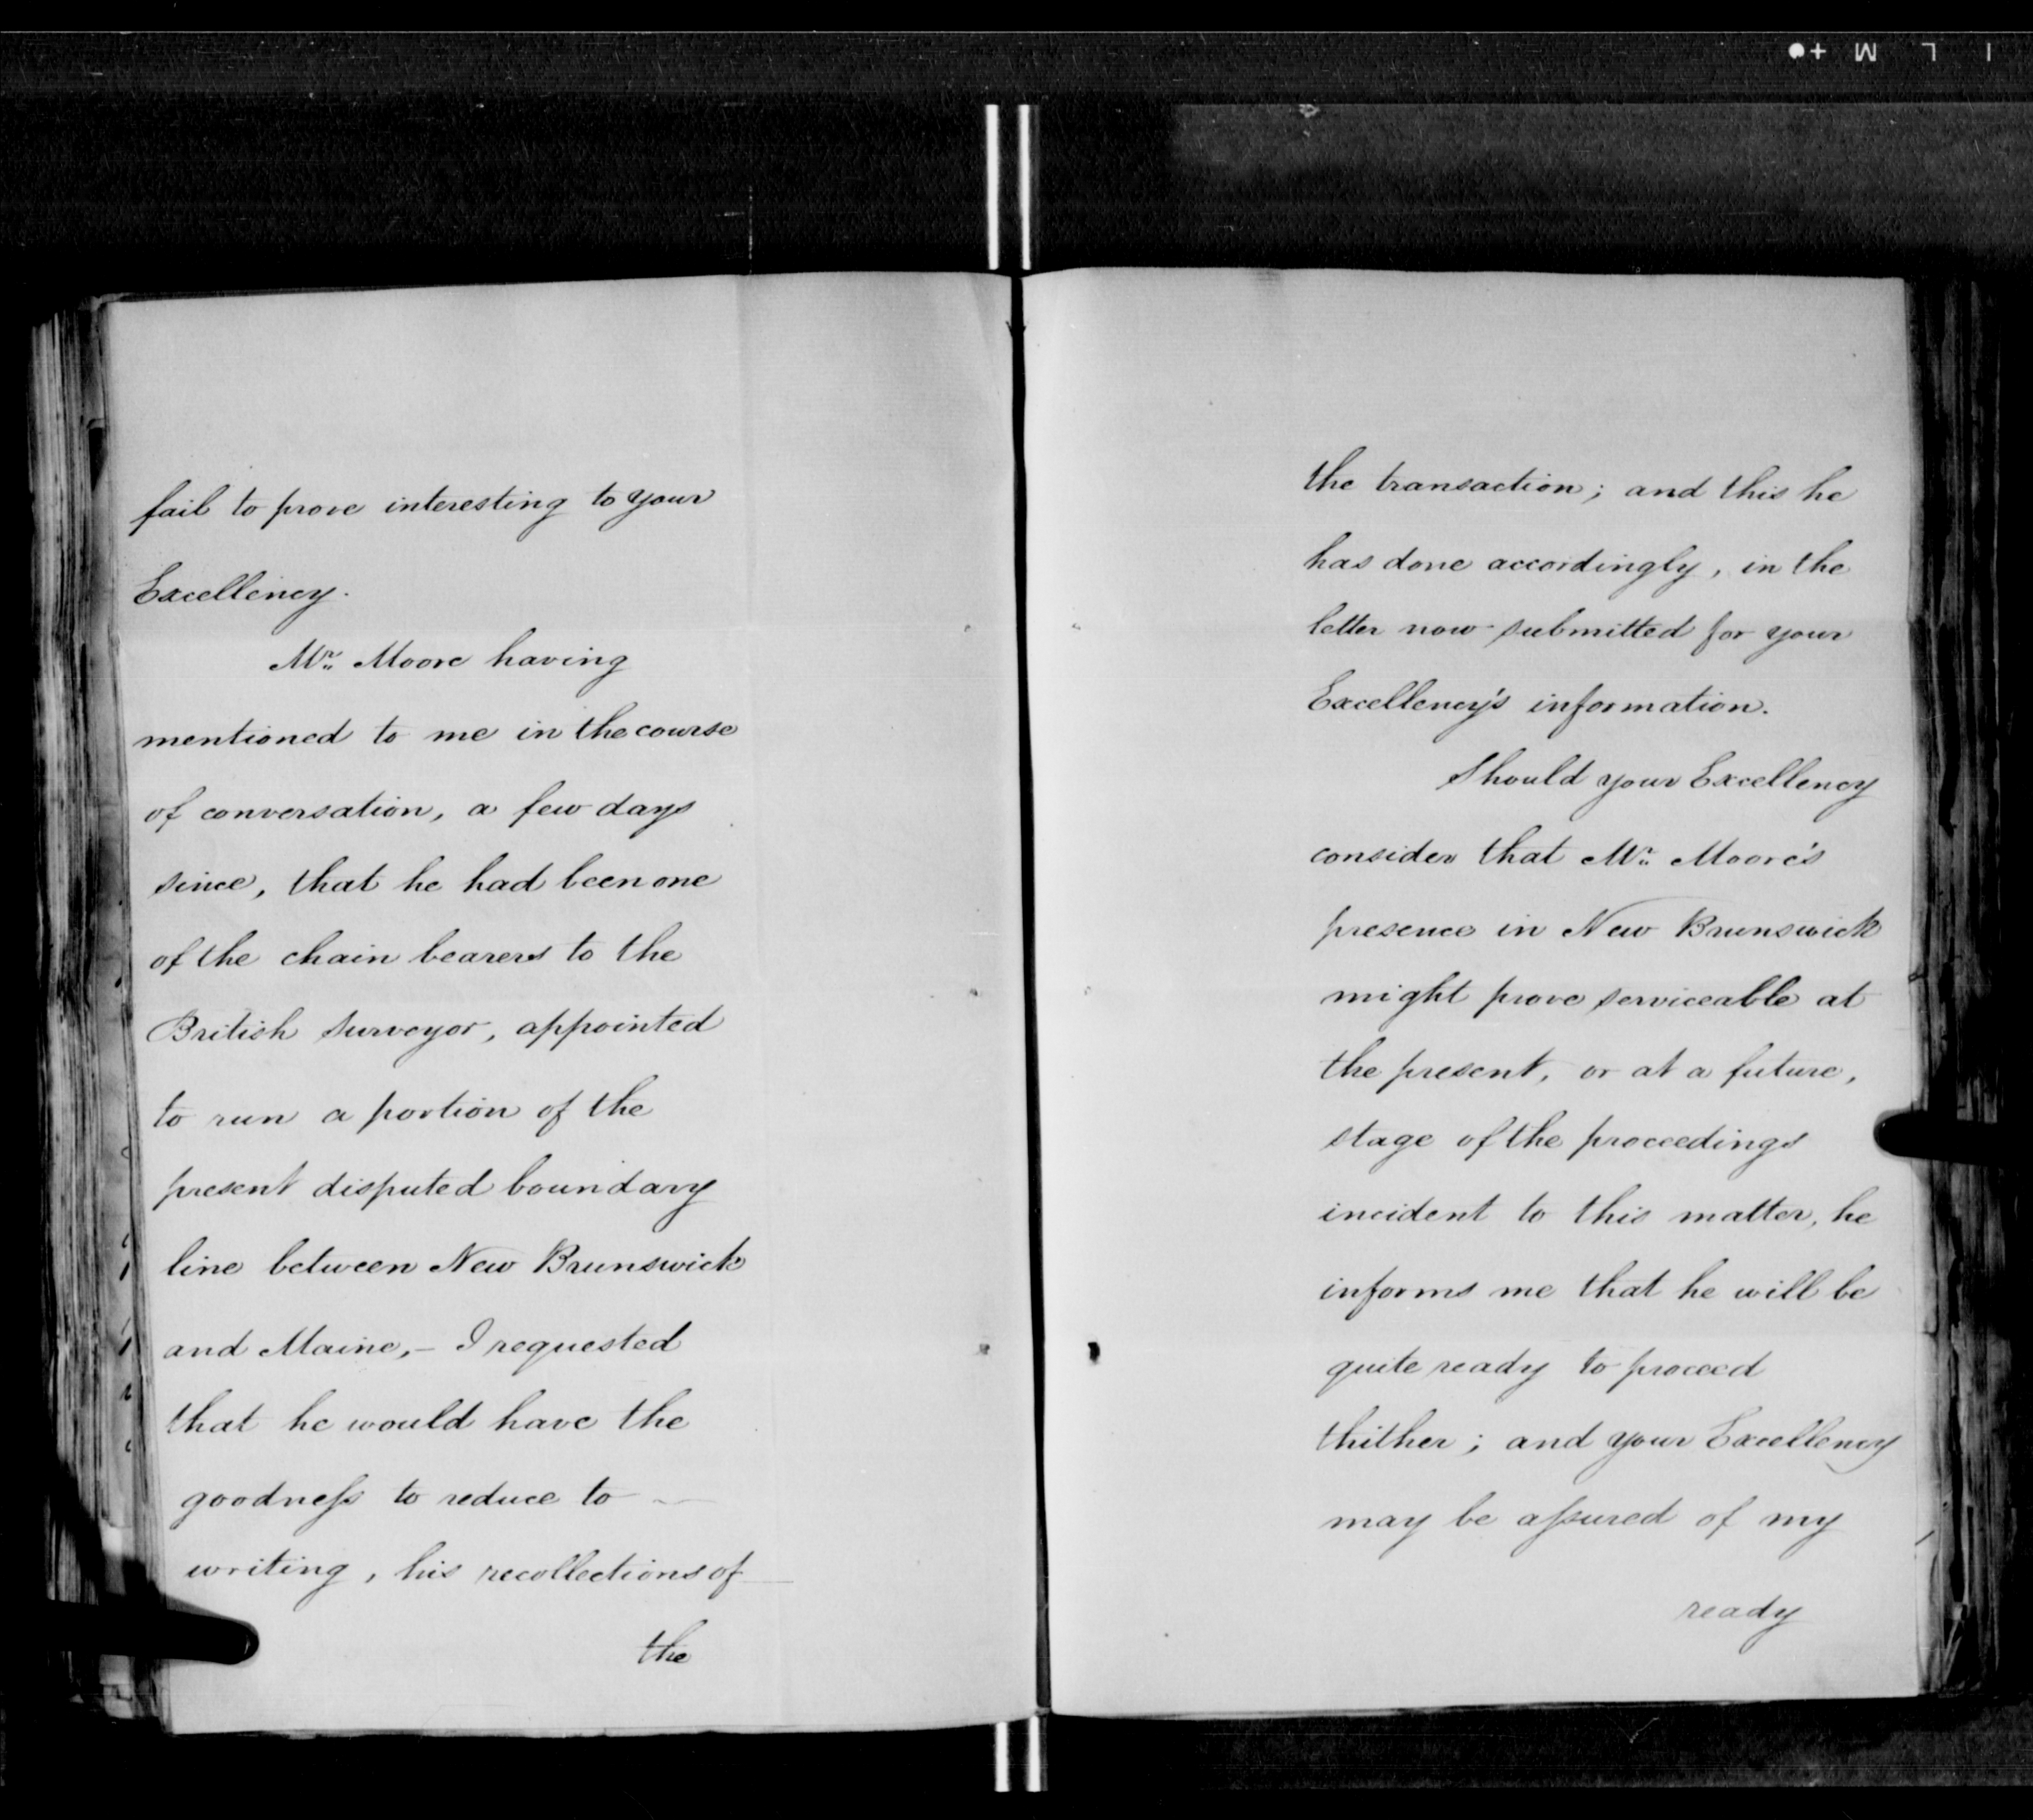 fail to prove interesting to your
Excellency.
Mr. Moore having
mentioned to me in the course
of conversation, a few days
since, that he had been one
of the chain bearers to the
British Surveyor, appointed
to run a portion of the
present disputed boundary
line between New Brunswick
and Maine,- I requested
that he would have the
goodneſs to reduce to
writing, his recollections of
the
the transaction; and this he
has done accordingly, in the
letter now submitted for your
Excellency's information.
Should your Excellency
consider that Mr. Moore's
presence in New Brunswick
might prove serviceable at
the present, or at a future,
stage of the proceedings
incident to this matter, he
informs me that he will be
quite ready to proceed
thither; and your Excellency
may be aſsured of my
ready